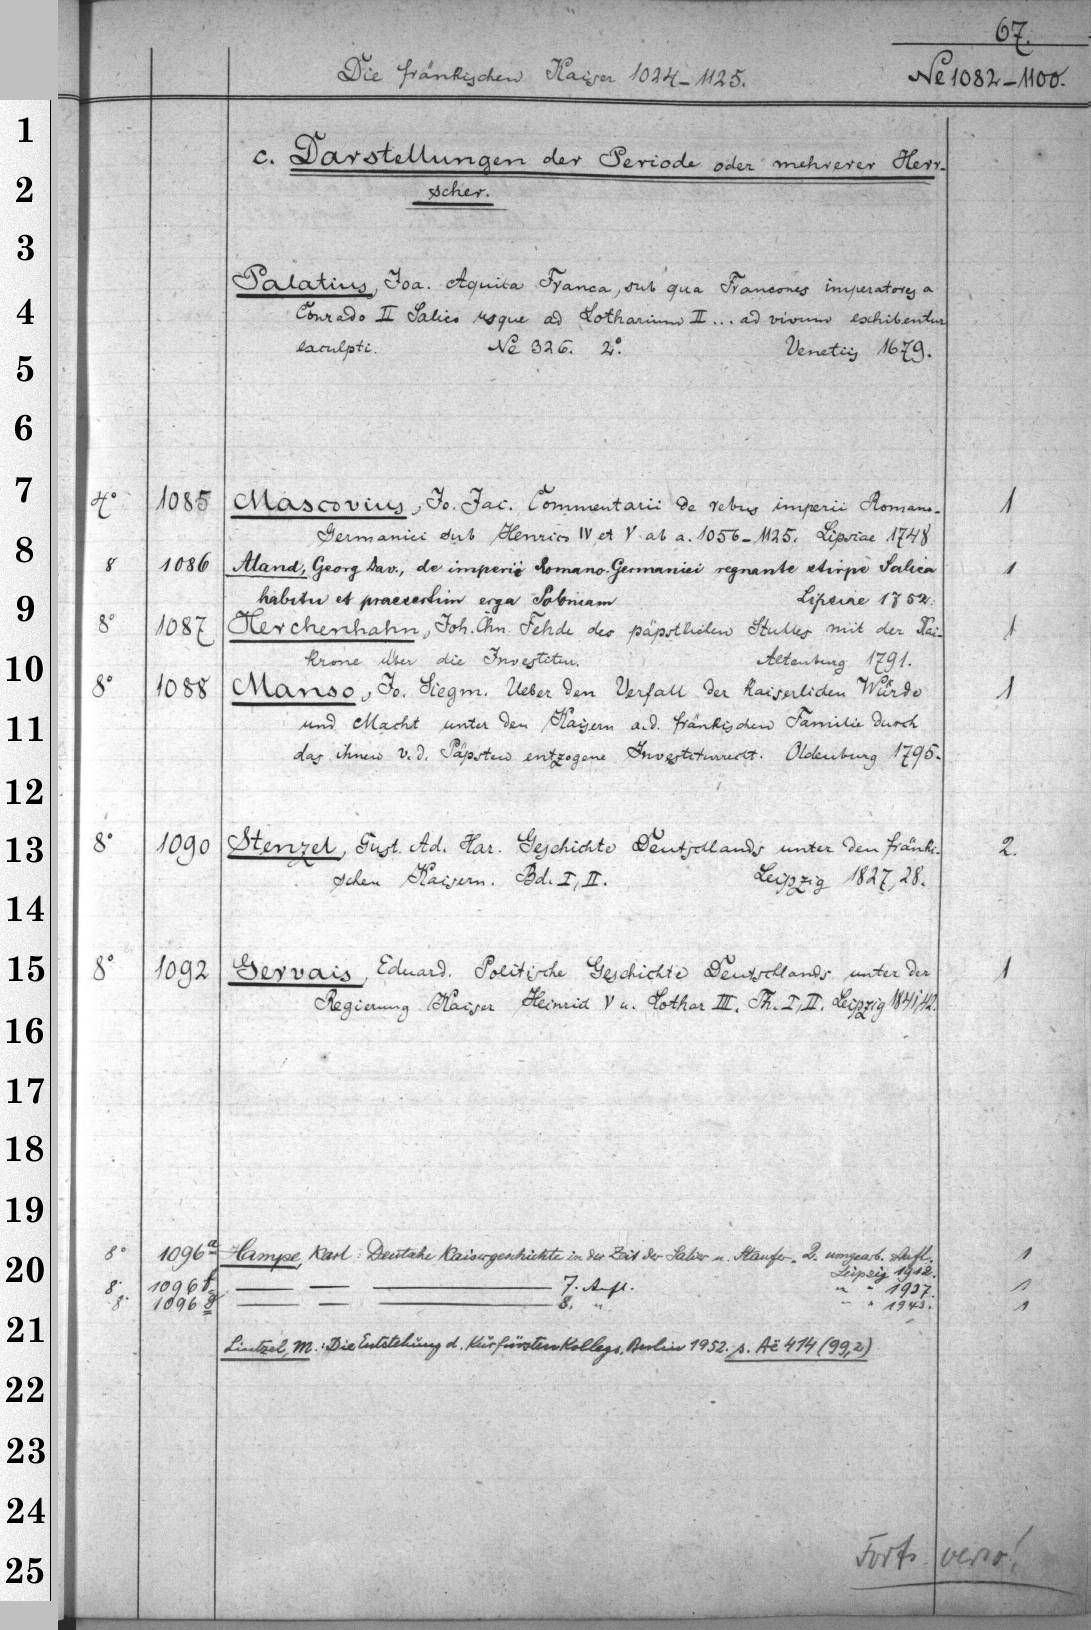 67.
Die fränkischen Kaiser 1024-1125.
Ne 1082-1100.
c. Darstellungen der Periode oder mehrerer Herr-
scher.
Palatius, Joa. Aquila Franca, sub qua Francones imperatores a
Conrado II Salico usque ad Lotharium II... ad vivum exhibentur
exculpti. Ne 326. 2°. Venetiis 1679.
4° 1085 Mascovius, Jo. Jac. Commentarii de rebus imperii Romano- 1
Germanici sub Henrico IV et V ab a. 1056-1125. Lipsiae 1748
8 1086 Aland, Georg Dav., de imperii Romano-Germanici regnante stirpe Salica 1
habitu et praesertim erga Poloniam Lipsiae 1752.
8° 1087 Herchenhahn, Joh. Chn. Fehde des päpstlichen Stuhles mit der Kai- 1
krone über die Investitur. Altenburg 1791.
8° 1088 Manso, Jo. Siegm. Ueber den Verfall der kaiserlichen Würde 1
und Macht unter den Kaisern a.d. fränkischen Familie durch
das ihnen v.d. Päpsten entzogene Investiturrecht. Oldenburg 1795.
8° 1090 Stenzel, Gust. Ad. Har. Geschichte Deutschlands unter den fränki- 2.
schen Kaisern. Bd. I, II. Leipzig 1827, 28.
8° 1092 Gervais, Eduard. Politische Geschichte Deutschlands unter der 1
Regierung Kaiser Heinrich V u. Lothar III. Th. I, II. Leipzig 1841/42.
8° 1096a Hampe, Karl: Deutsche Kaisergeschichte in der Zeit der Salier u. Staufer. 2. umgearb. Aufl. 1
Leipzig 1912.
8° 1096f — — — 7. Aufl. " " 1937. 1
8° 1096g — — — 8. " " " 1943. 1
Lintzel, M.: Die Entstehung d. Kurfürstenkollegs. Berlin 1952. s. Ac 414 (99,2)
Forts. verso!
1
2
3
4
5
6
7
8
9
10
11
12
13
14
15
16
17
18
19
20
21
22
23
24
25